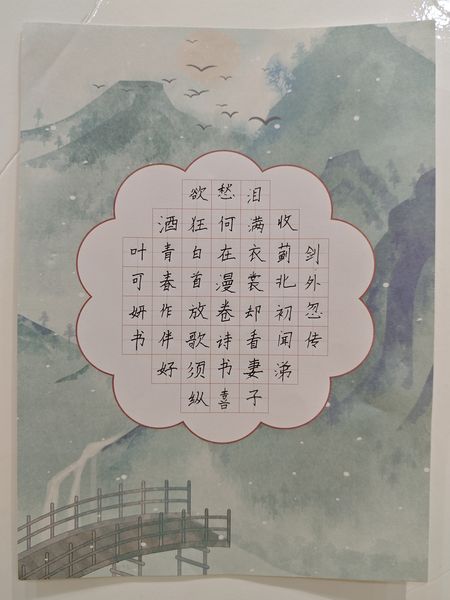 剑外忽传
收蓟北初闻涕
泪满衣裳却看妻子
愁何在漫卷诗书喜
欲狂白首放歌须纵
酒青春作伴好
叶可妍书